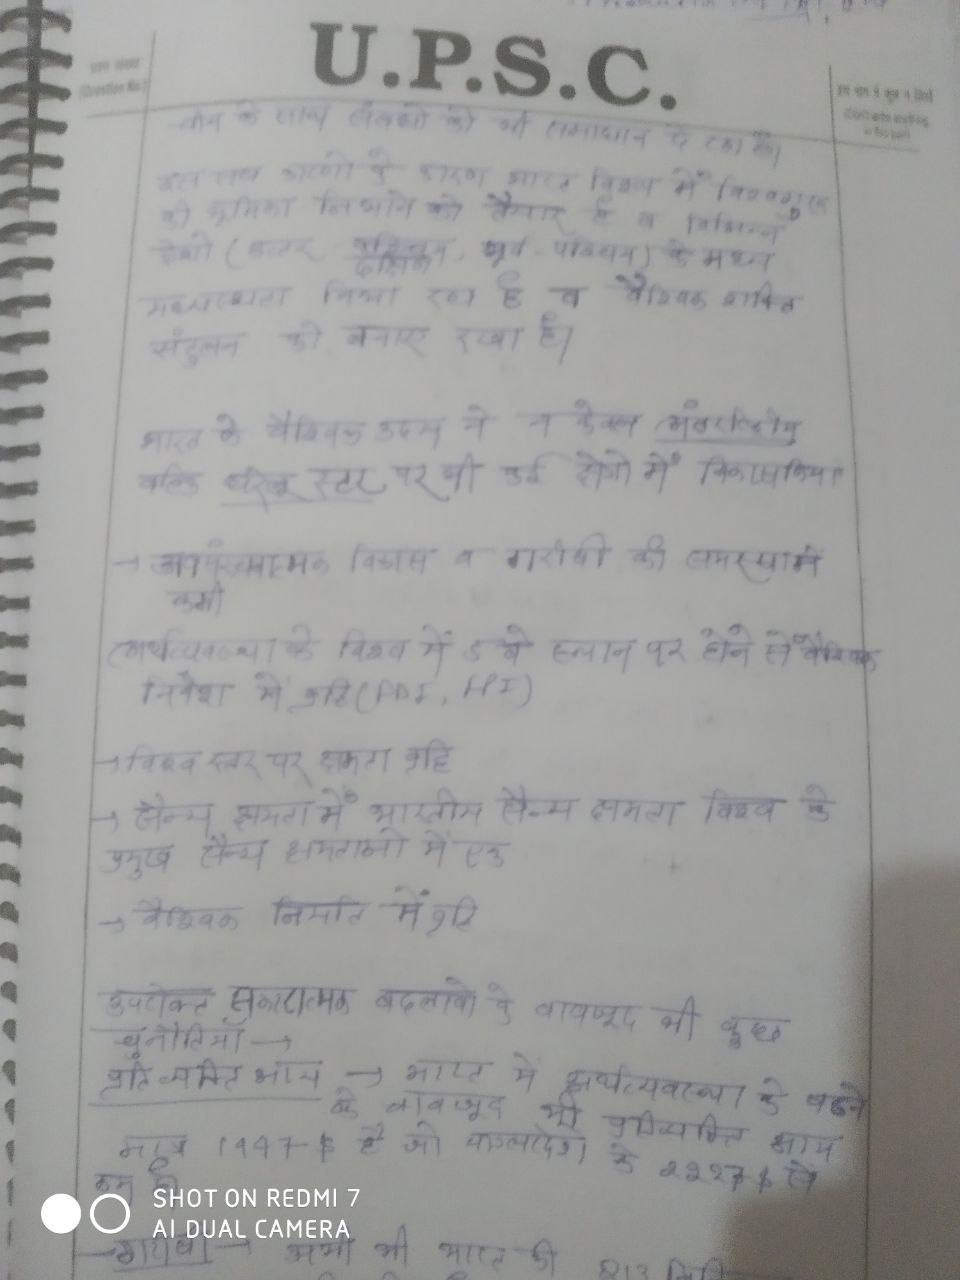 U.P.S.C.
(Question No.)
इस भाग में कुछ न लिखें
(Don't write anything
in this part)
के साथ संबंधों को भी समाधान दे रहा है।
इन सब कारणों के कारण भारत विश्व में विश्वगुरू
की भूमिका निभाने को तैयार है व विभिन्न
देशों (उत्तर दक्षिण, पूर्व-पश्चिम) के मध्य
मध्यस्थता निभा रहा है व वैश्विक शक्ति
संतुलन को बनाए रखा है।
भारत के वैश्विक उदय ने न केवल अंतराष्ट्रीय
बल्कि घरेलू स्तर पर भी कई क्षेत्रों में विकास किया
→ अवसंरचनात्मक विकास व गरीबी की समस्या में
कमी
अर्थव्यवस्था के विश्व में 5 वे स्थान पर होने से वैश्विक
निवेश में वृद्धि (FDI, FPI)
→ विश्व स्तर पर क्षमता वृद्धि
→ सैन्य क्षमता में भारतीय सैन्य क्षमता विश्व के
प्रमुख सैन्य क्षमताओ में एक
→ वैश्विक निर्यात में वृद्धि
उपरोक्त सकारात्मक बदलावो के बावजूद भी कुछ
चुनौतियाँ →
प्रति व्यक्ति आय → भारत में अर्थव्यवस्था के बढने
के बावजूद भी प्रतिव्यक्ति आय
मात्र 1947 $ है जो बांग्लादेश के 2227 $ से
कम है
→ गरीबी → अभी भी भारत की
SHOT ON REDMI 7
AI DUAL CAMERA